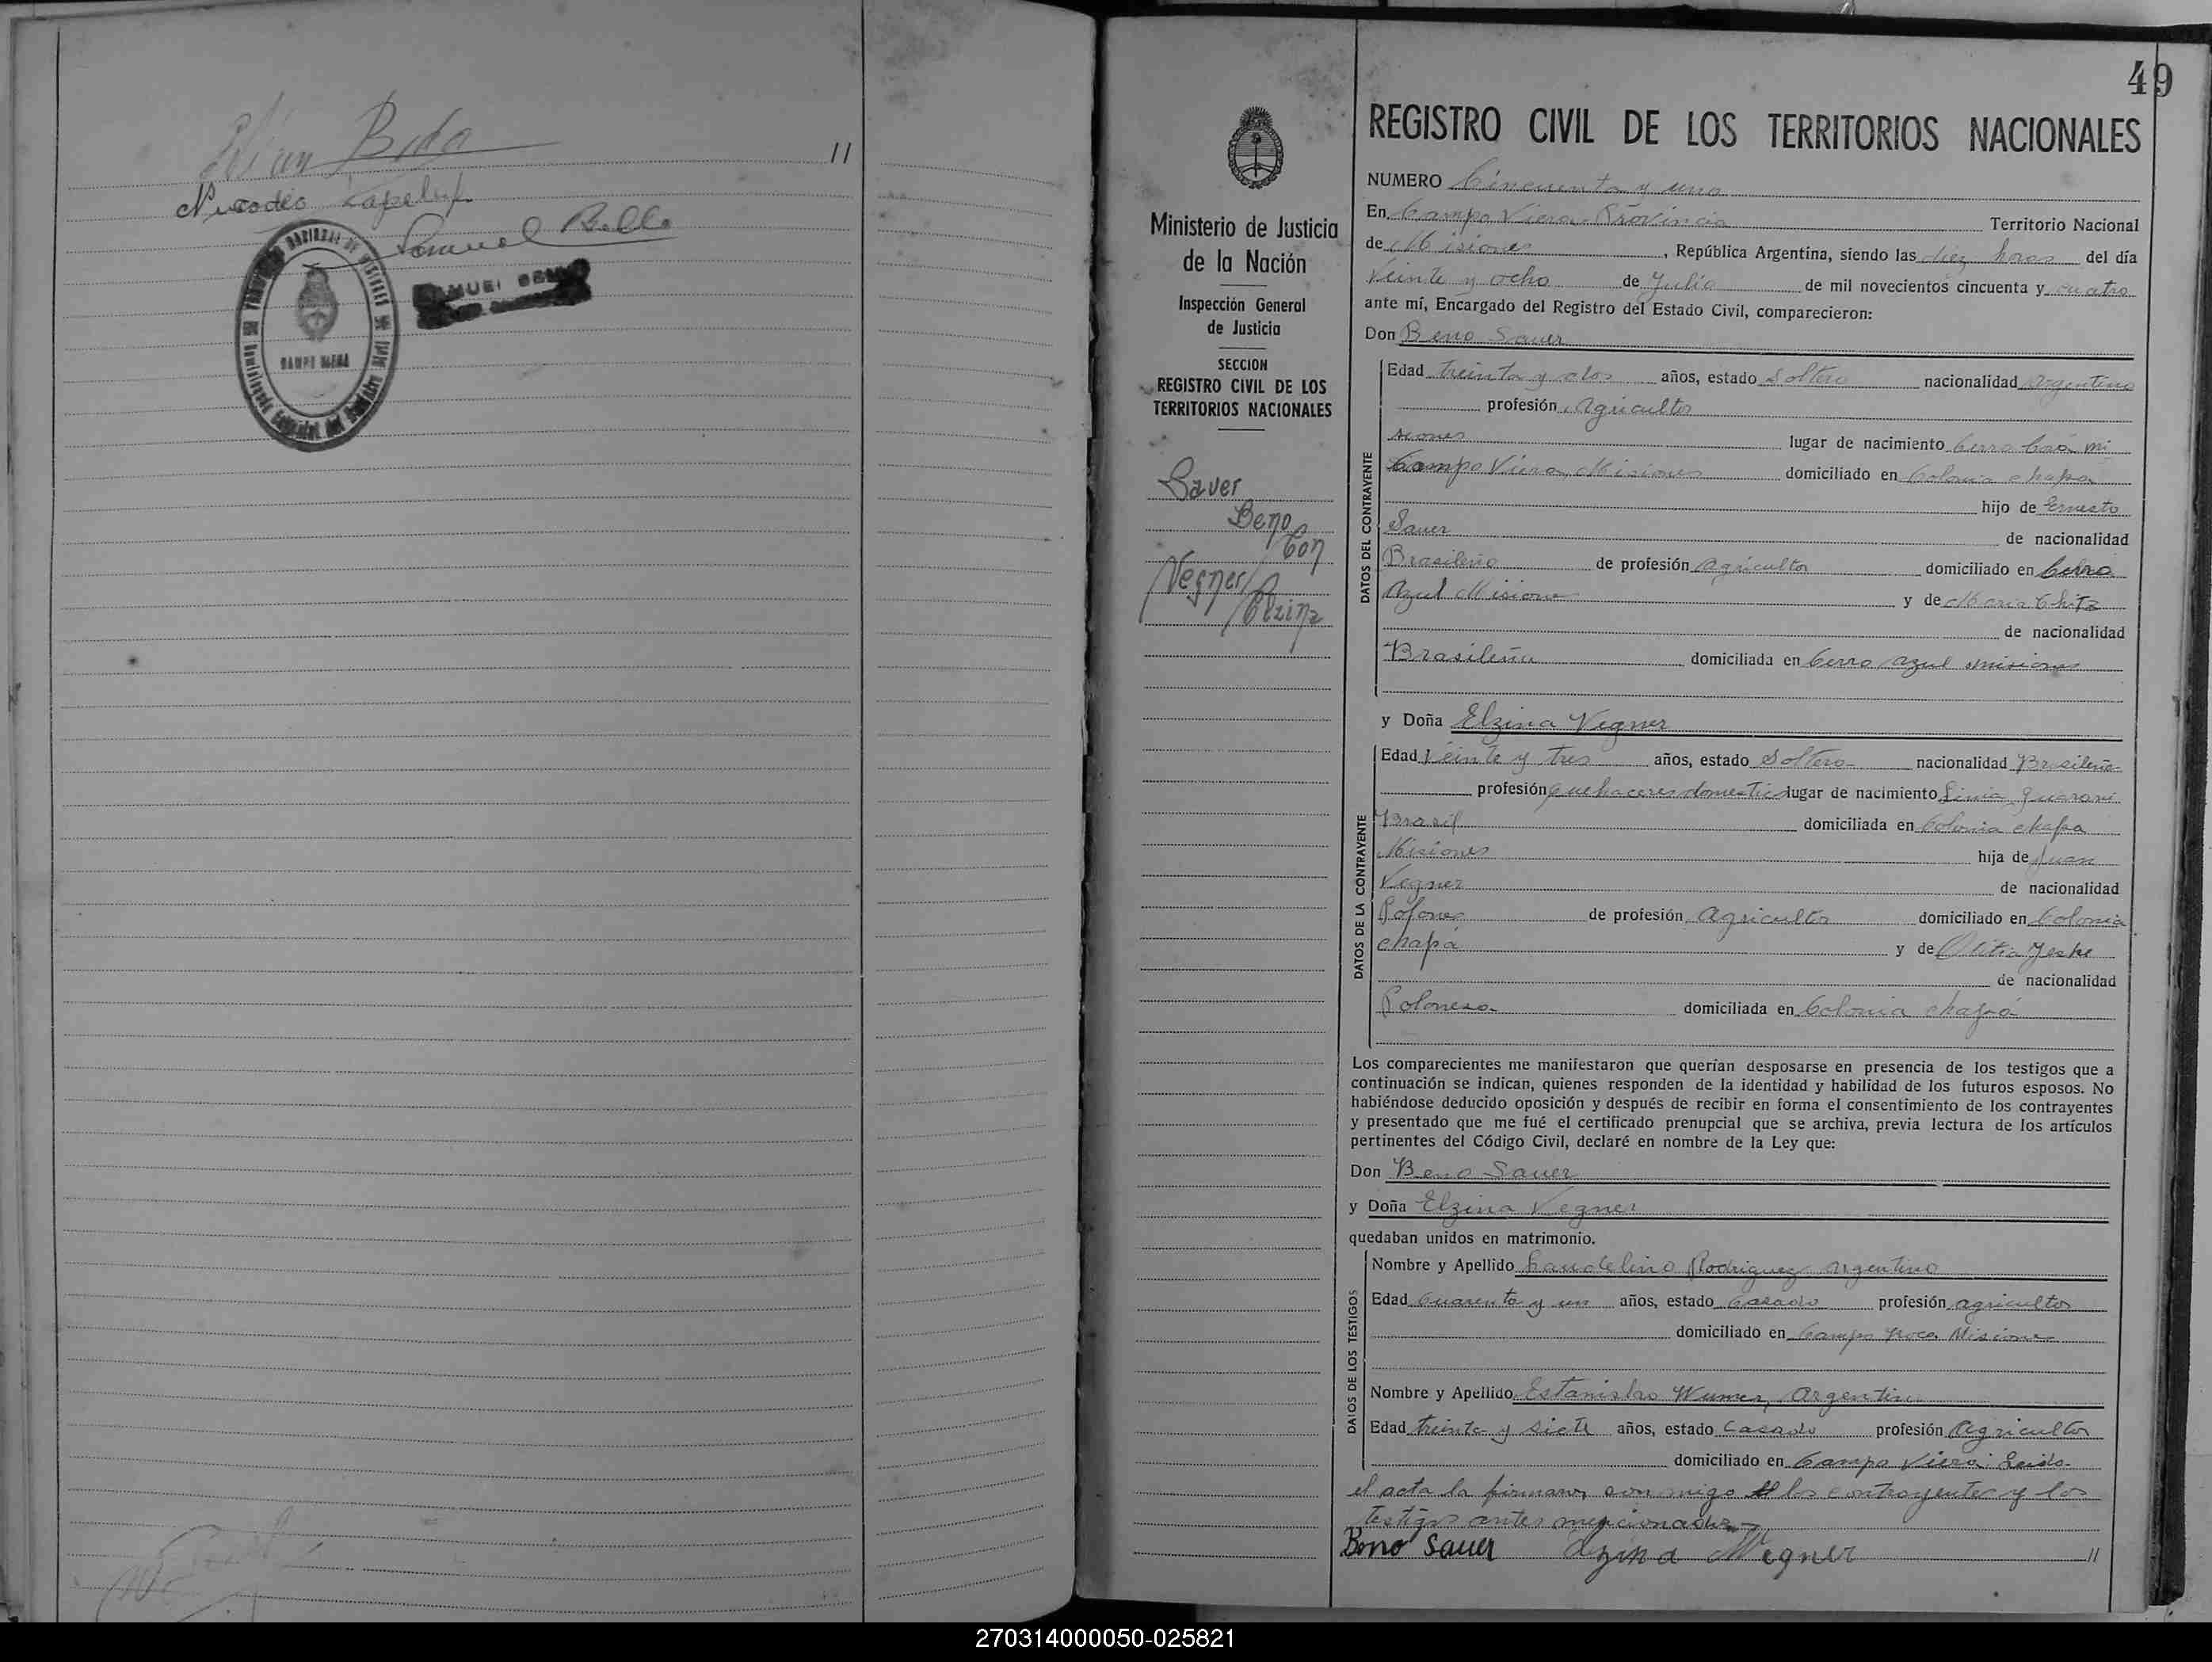 Bda
11
Nicodéo
Samuel Bello
CAMPO VIERA
49
REGISTRO CIVIL DE LOS TERRITORIOS NACIONALES
Ministerio de Justicia
de la Nación
Inspección General
de Justicia
SECCION
REGISTRO CIVIL DE LOS
TERRITORIOS NACIONALES
Sauer
Beno
Con
Vegner
Elzina
NUMERO Cincuenta y uno
En Campo Viera Provincia Territorio Nacional
de Misiones, República Argentina, siendo las diez horas del día
Veinte y ocho de Julio de mil novecientos cincuenta y cuatro
ante mí, Encargado del Registro del Estado Civil, comparecieron:
Don Beno Sauer
DATOS DEL CONTRAYENTE
Edad treinta y dos años, estado Soltero nacionalidad argentino
profesión Agricultor
siones lugar de nacimiento Cerro Corá mi
Campo Viera Misiones domiciliado en Colonia chapa
hijo de Ernesto
Sauer de nacionalidad
Brasileño de profesión Agricultor domiciliado en Cerro
Azul Misiones y de Maria
de nacionalidad
Brasileña domiciliada en Cerro Azul misiones
y Doña Elzina Vegner
DATOS DE LA CONTRAYENTE
Edad Veinte y tres años, estado Soltera nacionalidad Brasileña
profesión quehaceres domestico lugar de nacimiento Linia guarani
Brasil domiciliada en Colonia chapa
Misiones hija de Juan
Vegner de nacionalidad
Polones de profesión Agricultor domiciliado en Colonia
chapá y de
de nacionalidad
Polonesa domiciliada en Colonia chapá
Los comparecientes me manifestaron que querían desposarse en presencia de los testigos que a
continuación se indican, quienes responden de la identidad y habilidad de los futuros esposos. No
habiéndose deducido oposición y después de recibir en forma el consentimiento de los contrayentes
y presentado que me fué el certificado prenupcial que se archiva, previa lectura de los artículos
pertinentes del Código Civil, declaré en nombre de la Ley que:
Don Beno Sauer
y Doña Elzina Vegner
quedaban unidos en matrimonio.
DATOS DE LOS TESTIGOS
Nombre y Apellido Laudelino Rodriguez argentino
Edad Cuarenta y un años, estado Casado profesión agricultor
domiciliado en Campo Misiones
Nombre y Apellido Estanislao Argentino
Edad treinta y siete años, estado Casado profesión Agricultor
domiciliado en Campo Viera. Leida
el acta la firmaron con migo los contrayentes y los
testigos antes mencionados
Beno Sauer Elzina Wegner 11
270314000050-025821